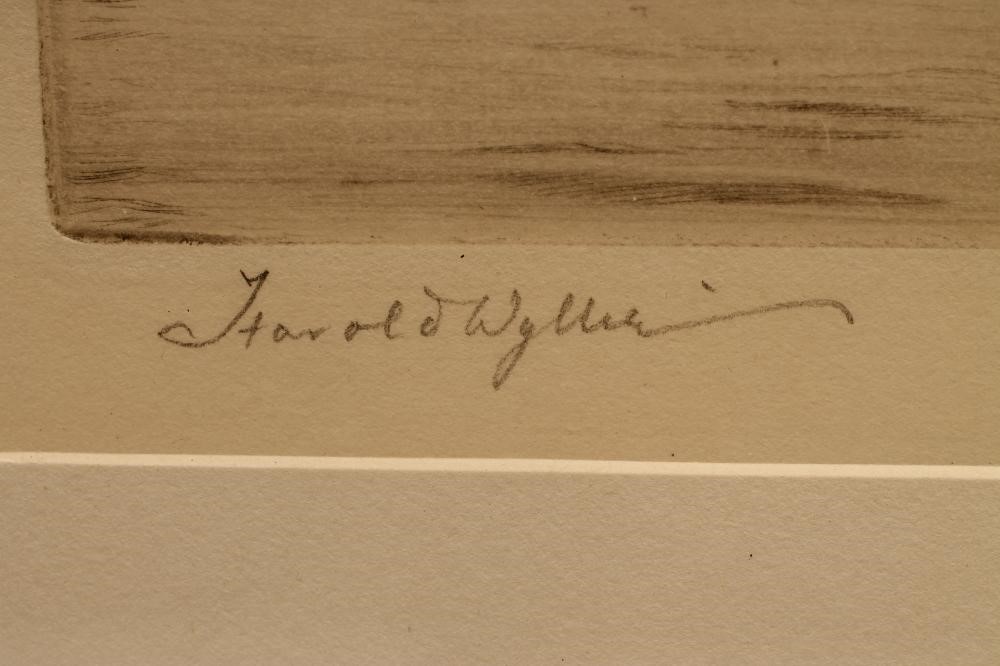 Harold Wyllie